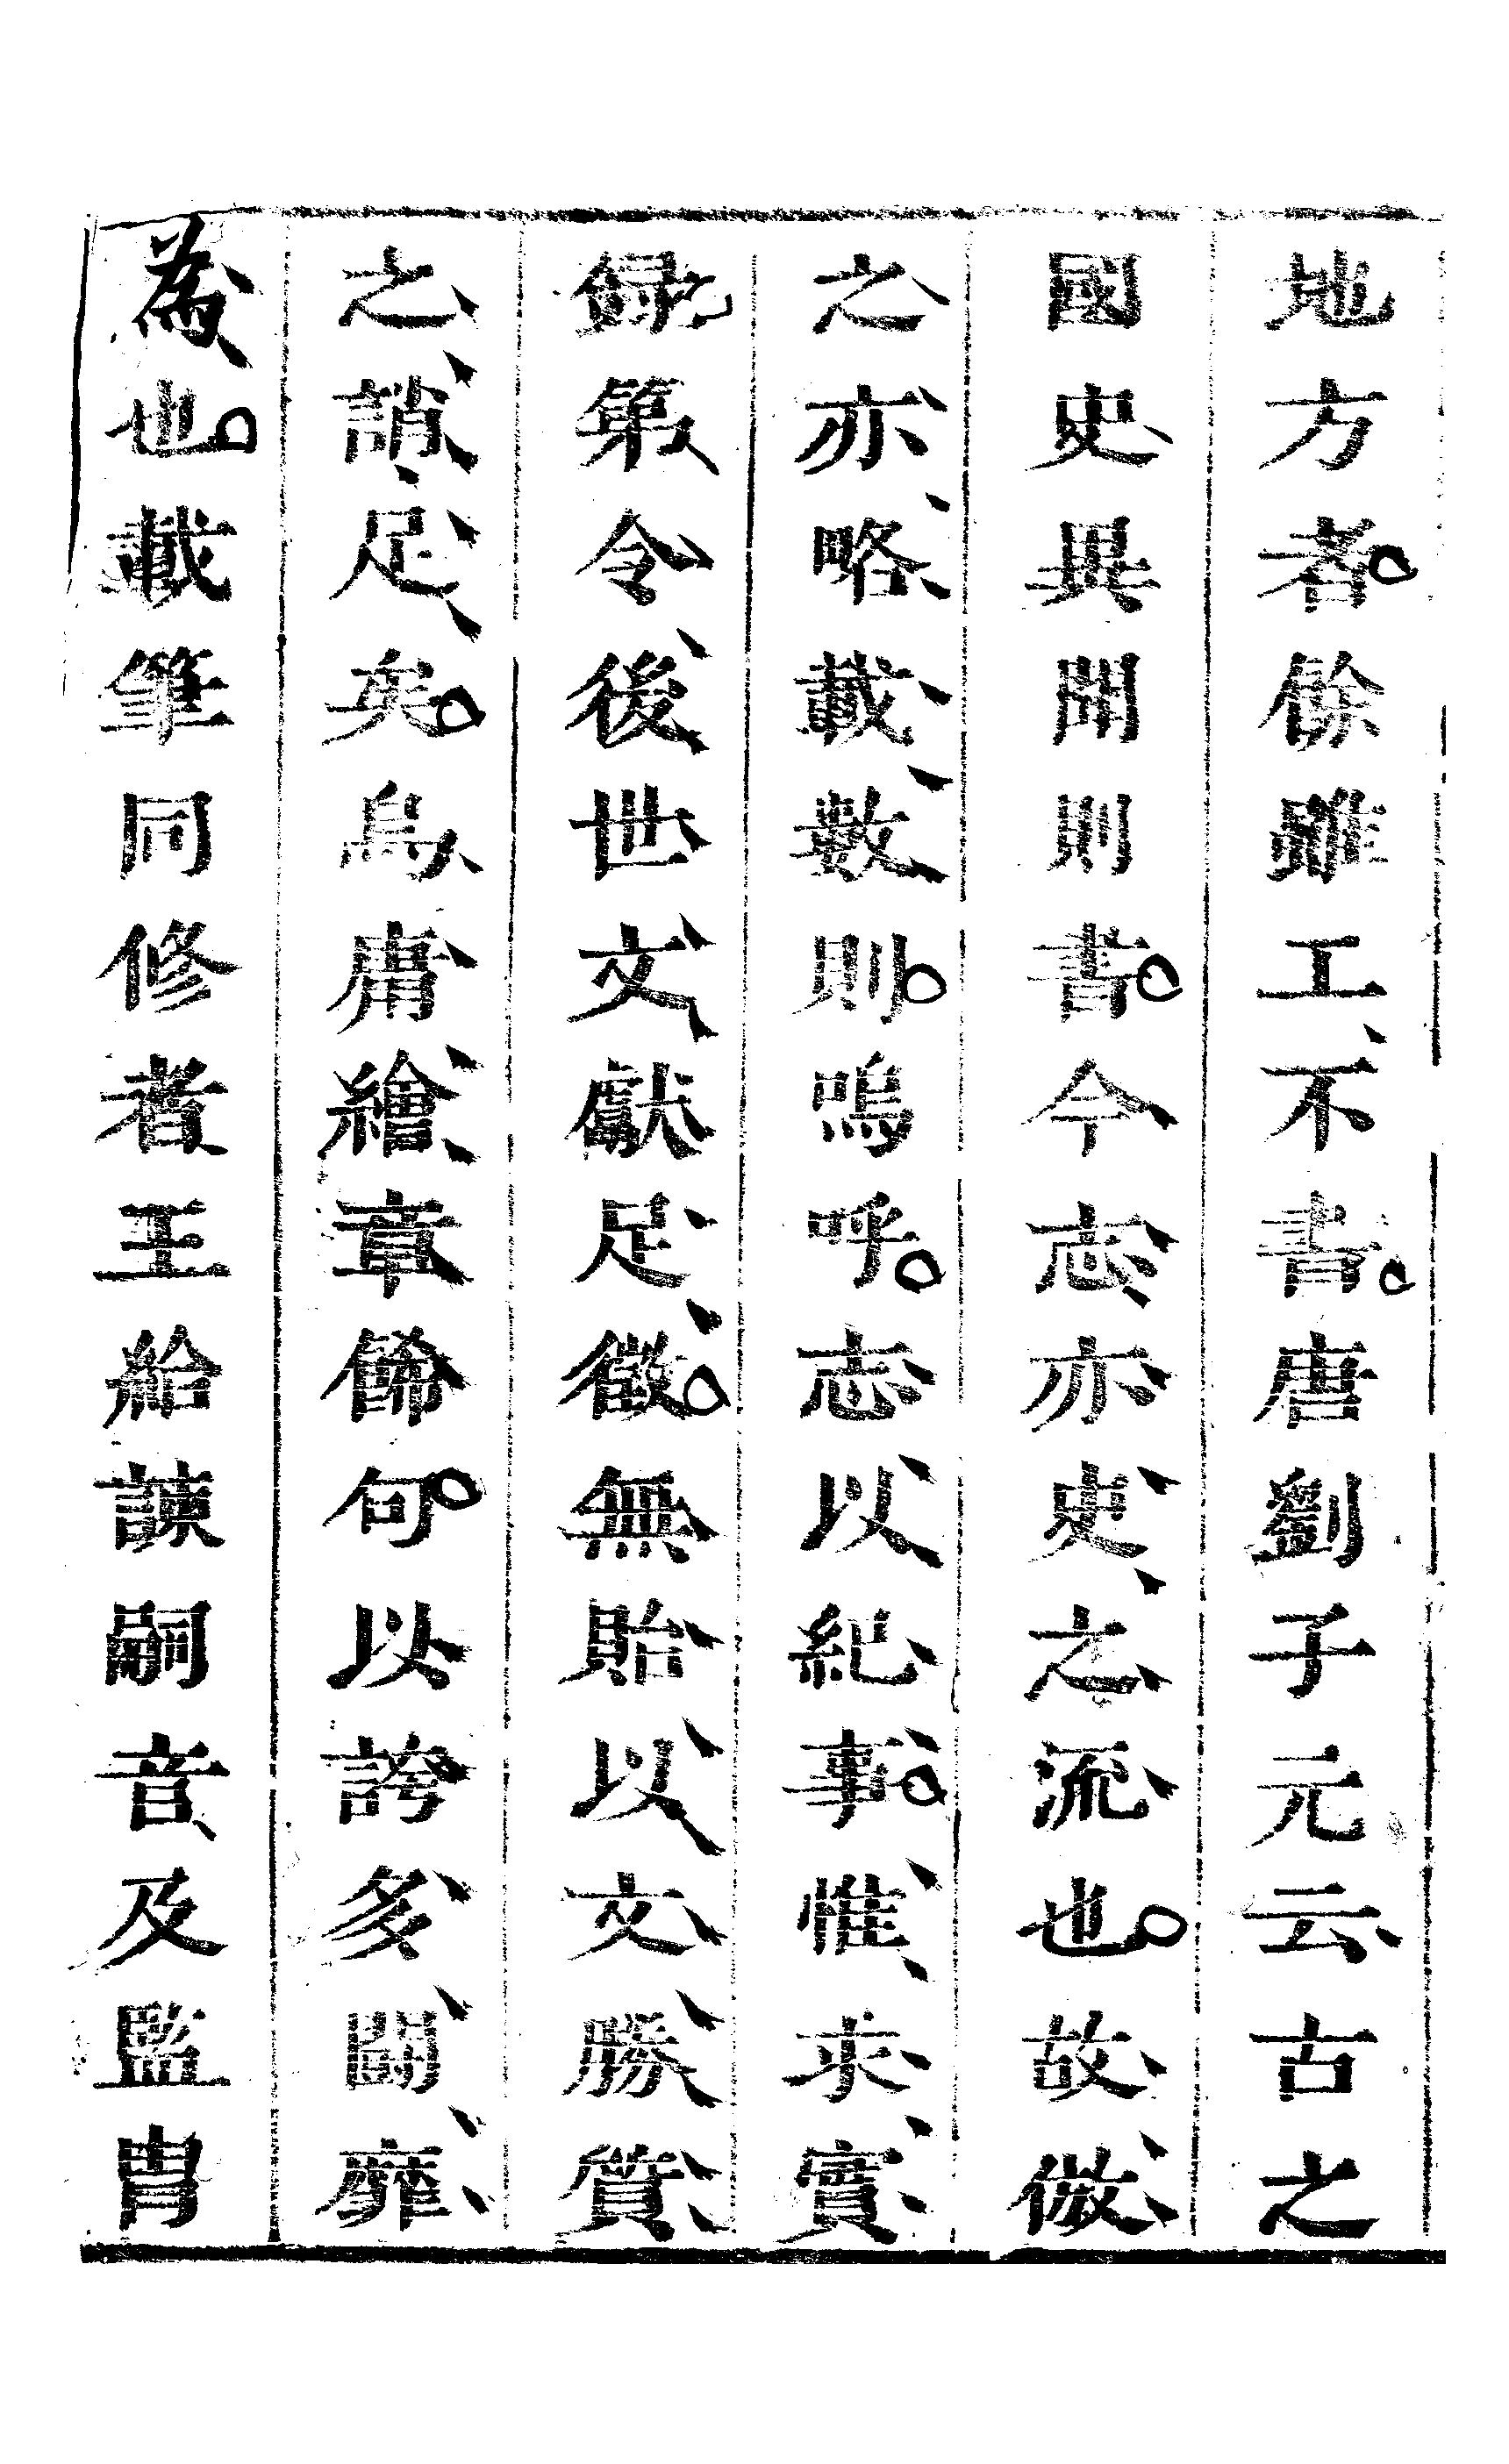 地方者餘雖工不書唐劉子元云古之
國史異聞則書今志亦史之流也故倣
之亦略載數則嗚呼志以紀事惟求實
録第令後世文獻足徵無貽以文勝質
之誚足矣烏庸繪章飾句以誇多鬪靡
為也載筆同修者王給諫嗣音及監胄